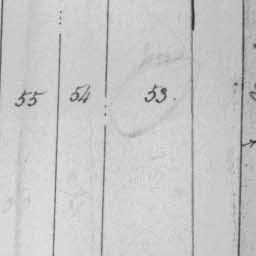 55 54 53.